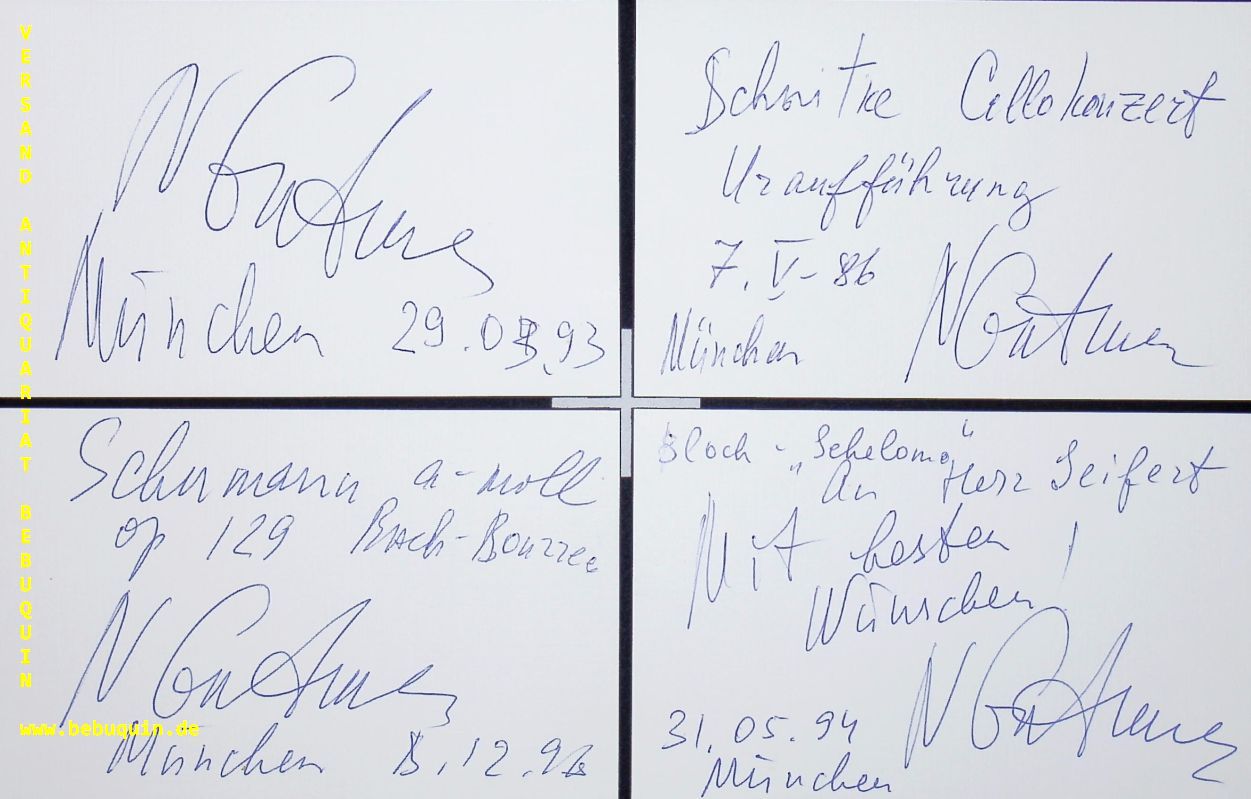 VERSAND ANTIQUARIAT BEBUQUIN
www.bebuquin.de
München 29.03.93
Schnitke Cellokonzert
Uraufführung
7. V - 86
München
Schumann a-moll
op 129 Bach-Bourree
München 8.12.96
Bloch - "Schelomo"
An Herr Seifert
Mit besten
Wünschen!
31.05.94
München